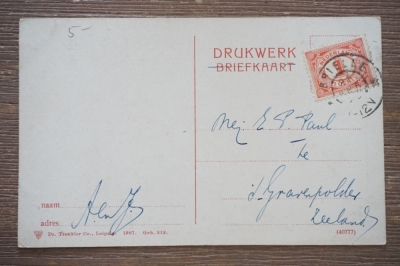 5-
DRUKWERK
BRIEFKAART
Mej E P Paul
te
's Gravenpolder
Zeeland
naam
adres
Dr. Trenkler Co., Leipzig. 1907.
(40777)